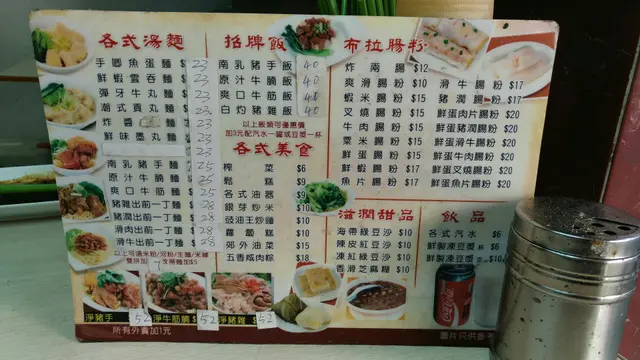 各式湯麵
手唧魚蛋麵 $23
鮮蝦雲吞麵 $23
彈牙牛丸麵 $23
潮式貢丸麵 $23
炸醬麵 23
鮮味墨丸麵 23
南乳豬手麵 25
原汁牛腩麵 25
爽口牛筋麵 25
豬雜出前一丁麵 28
豬潤出前一丁麵 28
滑肉出前一丁麵 28
滑牛出前一丁麵 28
以上可選米粉/河粉/生麵/米線
雙拼加 出前一丁麵加$5
招牌飯
南乳豬手飯 40
原汁牛腩飯 40
爽口牛筋飯 40
白灼豬雜飯 40
以上飯類可享優惠價
加3元配汽水一罐或豆漿一杯
各式美食
糉菜 $6
鬆糕 $9
各式油器 $9
銀芽炒米 $10
豉油王炒麵 $10
蘿蔔糕 $10
郊外油菜 $15
五香咸肉糉 $18
布拉腸粉
炸兩腸 $12
爽滑腸粉 $10
蝦米腸粉 $15
叉燒腸粉 $15
牛肉腸粉 $15
粟米腸粉 $15
鮮蛋腸粉 $15
鮮蝦腸粉 $17
魚片腸粉 $17
滑牛腸粉 $17
豬潤腸粉 $17
鮮蛋肉片腸粉 $20
鮮蛋豬潤腸粉 $20
鮮蛋滑牛腸粉 $20
鮮蛋牛肉腸粉 $20
鮮蛋叉燒腸粉 $20
鮮蛋魚片腸粉 $20
滋潤甜品
海帶綠豆沙 $10
陳皮紅豆沙 $10
凍紅綠豆沙 $10
香滑芝麻糊 $10
飲品
各式汽水 $6
鮮製凍豆漿 杯 $6
鮮製凍豆漿
淨豬手 $52
淨牛筋腩 $52
淨豬雜 $52
所有外賣加1元
圖片只供參